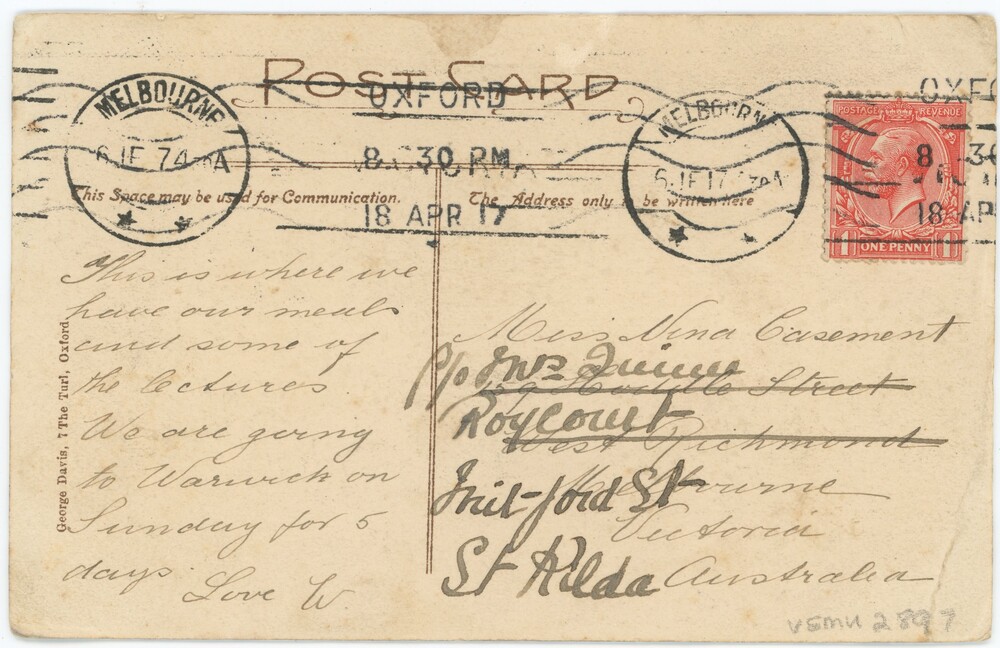 POST CARD
MELBOURNE
OXFORD
8 30 PM
18 APR 17
MELBOURN
6 JE 17
OXFO
8 30
18 AP
POSTAGE REVENUE
ONE PENNY
This Space may be used for Communication.
The Address only to be written here
George Davis, 7 The Turl, Oxford
This is where we
have our meals
and some of
the lectures
We are going
to Warwick on
Sunday for 5
days.
Love W.
Miss Nina Casement
Street
West Richmond
Melbourne
Victoria
Australia
Roycourt
St
St Kilda
VSMU 2897